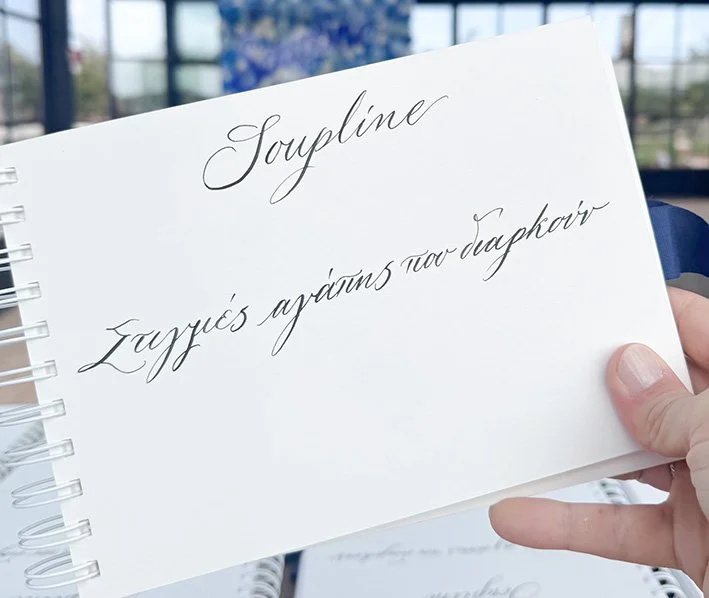 Soupline
Στιγμές αγάπης που διαρκούν